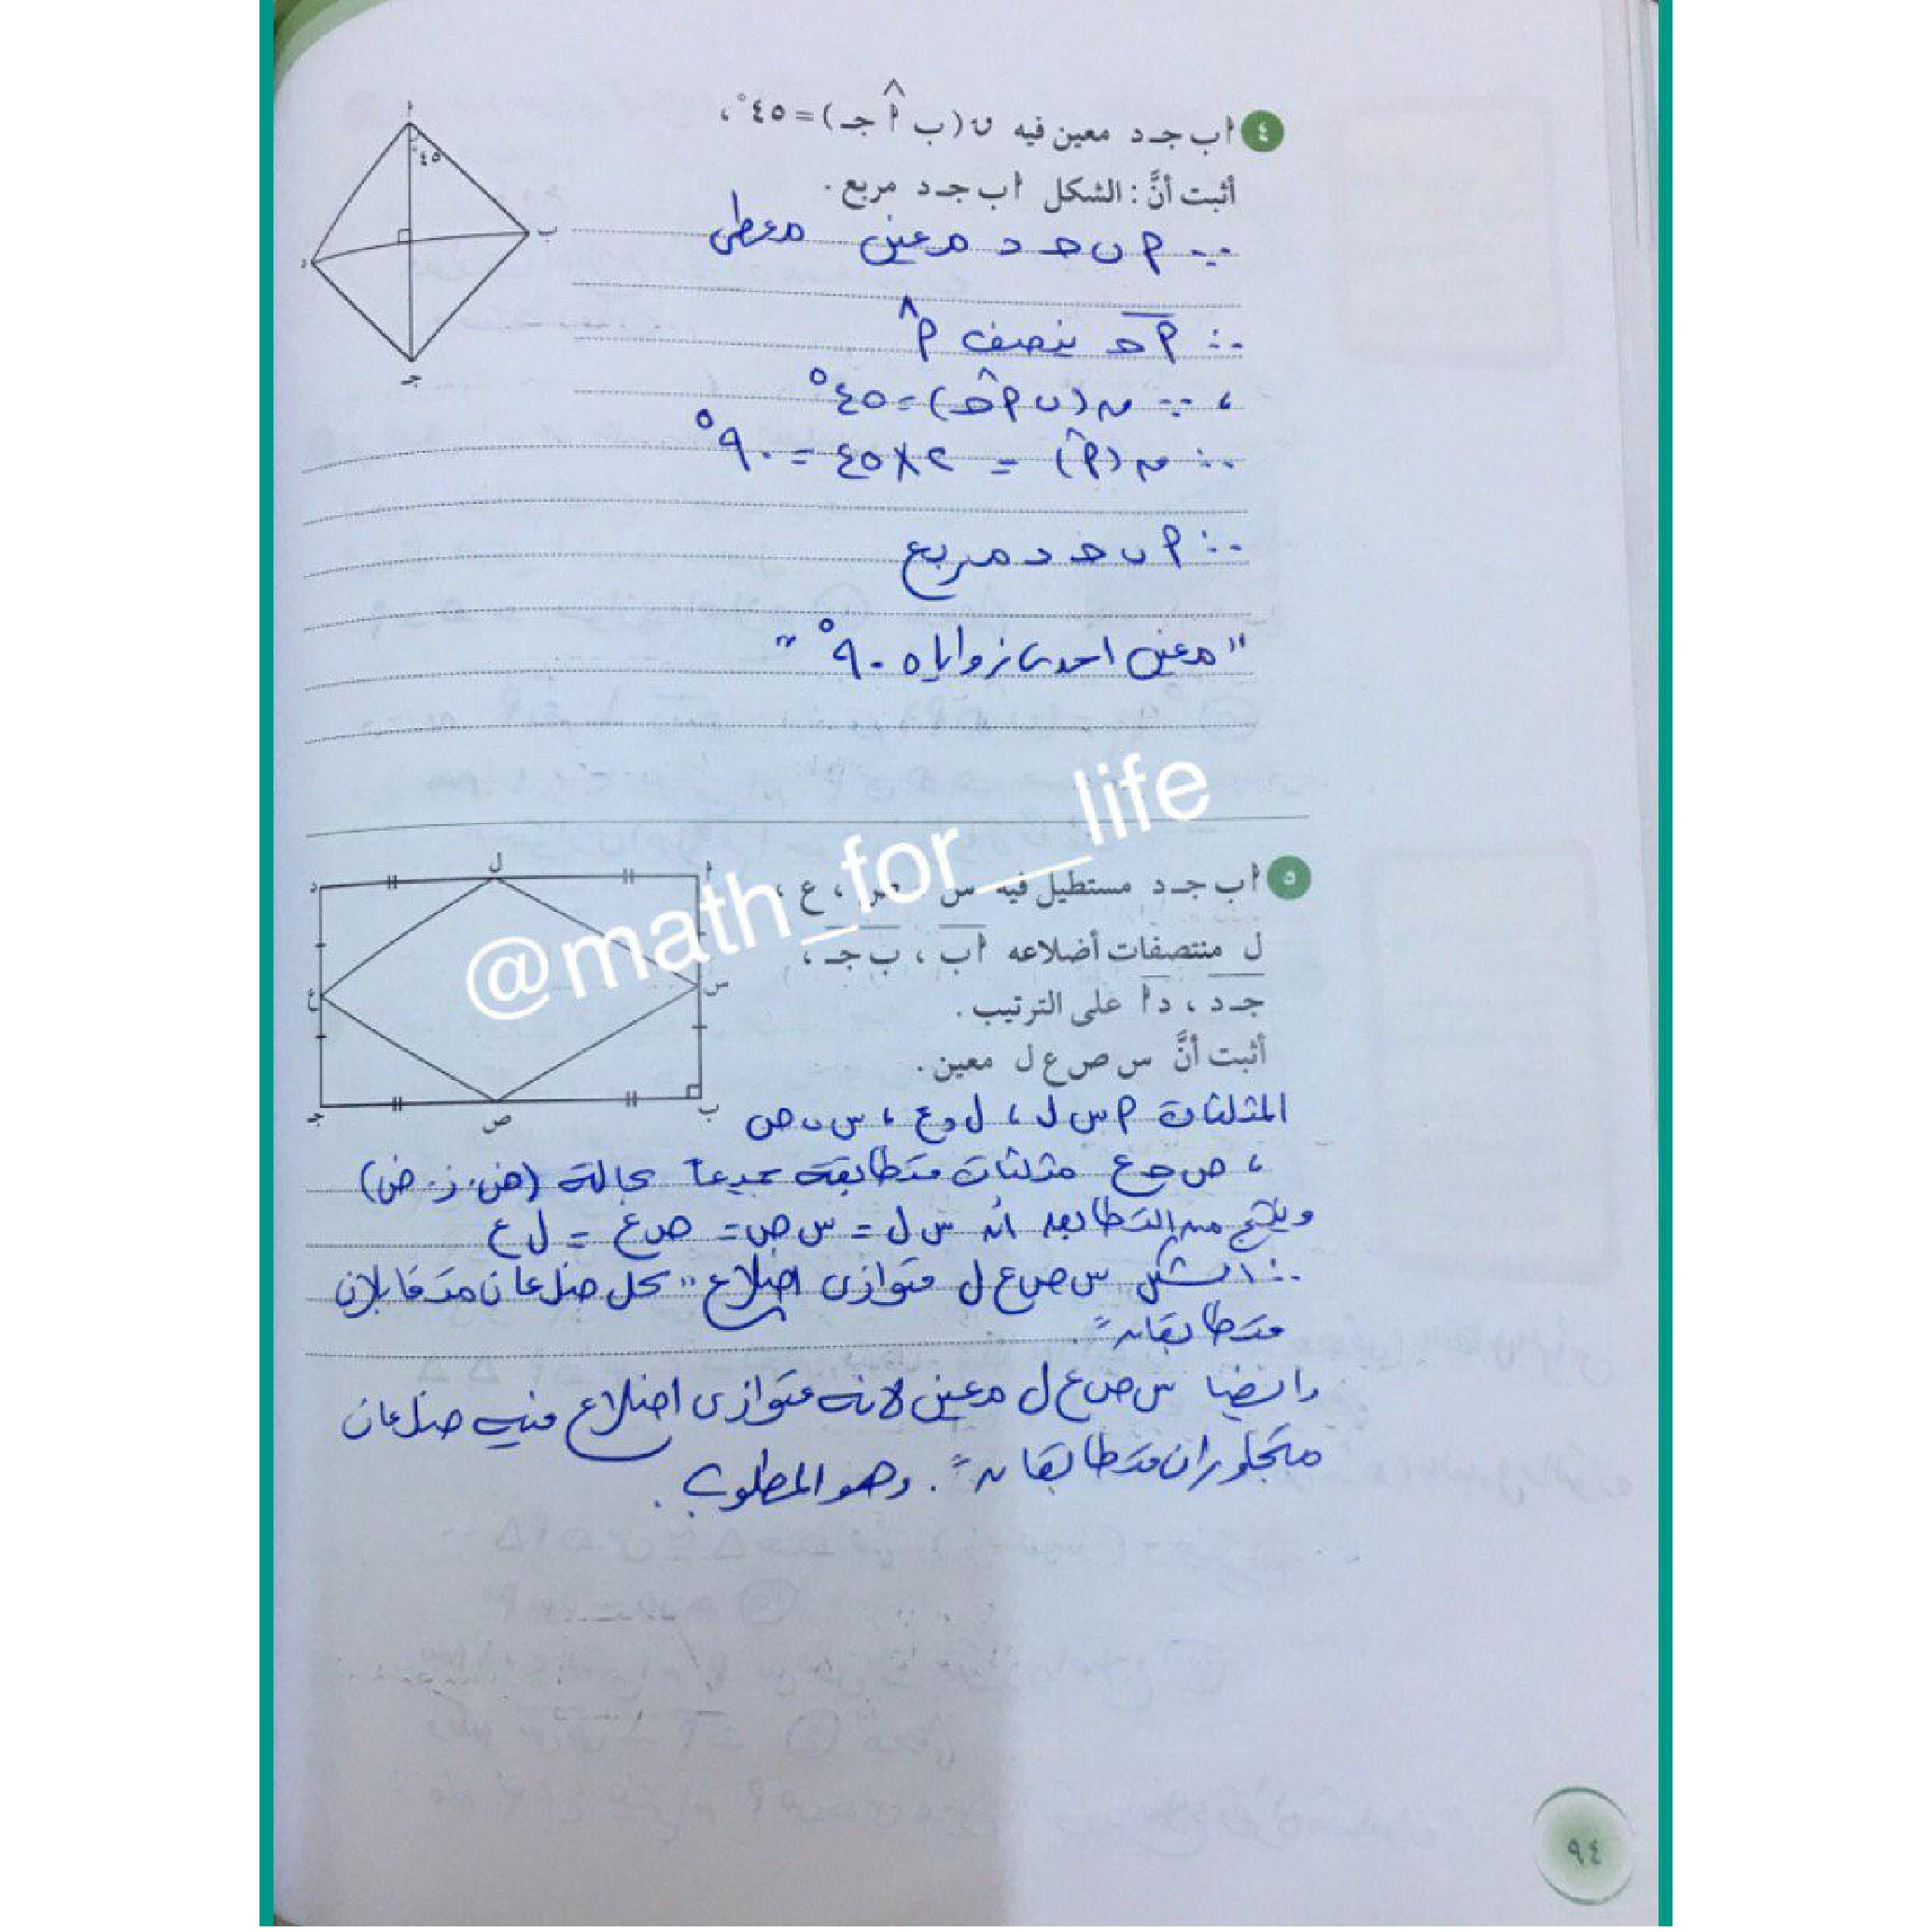 ٤ أ ب جـ د معين فيه ن(ب أ̂ جـ) = ٤٥°،
أثبت أنَّ : الشكل أ ب جـ د مربع .
أ
٤٥°
ب
د
جـ
∵ أ ب حـ د معين معطى
∴ أحـ ينصف أ̂
، ∵ ن(ب أ̂ حـ) = ٤٥°
∴ ن(أ̂) = ٢×٤٥ = ٩٠°
∴ أ ب حـ د مربع
"معين احدى زواياه ٩٠°"
@math_for__life
٥ أ ب جـ د مستطيل فيه س ، ص ، ع ،
ل منتصفات أضلاعه أب ، ب جـ ،
جـ د ، دأ على الترتيب .
أثبت أنَّ س ص ع ل معين .
د
ل
أ
ع
س
جـ
ص
ب
المثلثات أ س ل ، ل د ع ، س ب ص
، ص حـ ع مثلثات متطابقة جميعاً بحالة (ض.ز.ض)
وينتج من التطابق أن س ل = س ص = ص ع = ل ع
∴ الشكل س ص ع ل متوازى اضلاع "كل ضلعان متقابلان
متطابقان".
وايضا س ص ع ل معين لانه متوازى اضلاع فيه ضلعان
متجاوران متطابقان". وهو المطلوب .
٩٤